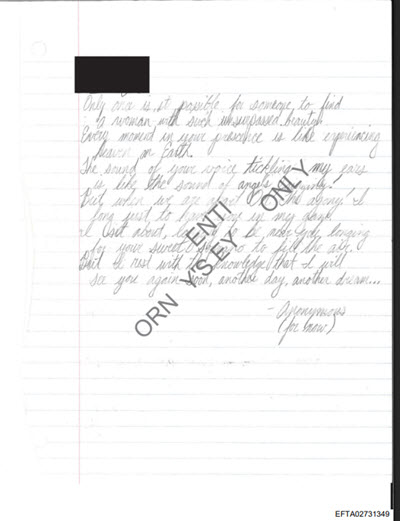 Only once is it possible for someone to find
a woman with such unsurpassed beauty.
Every moment in your presence is like experiencing
heaven on Earth.
The sound of your voice tickling my ears
is like the sound of angels
But when we are apart the agony! I
long just to have you in my
I about, to be longing
for your sweet to fill the air.
But I rest with the knowledge that I will
see you again soon, another day, another dream...
- Anonymous
(for now)
ENTI
ONLY
ORN Y'S EY
EFTA02731349